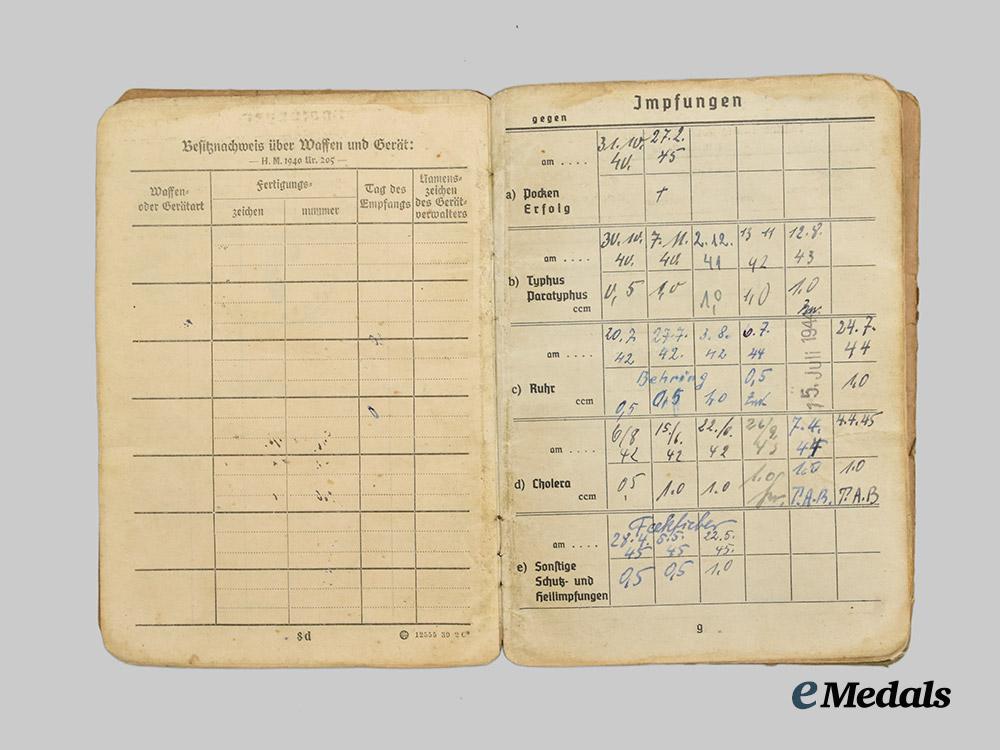 Besitznachweis über Waffen und Gerät:
— H. M. 1940 Nr. 205 —
Waffen- oder Gerätart
Fertigungs-
zeichen
nummer
Tag des Empfangs
Namens- zeichen des Gerät- verwalters
8d
12555 39 2 C
Impfungen
gegen
am .... 31. 10. 40. 27. 2. 45
a) Pocken
Erfolg †
am .... 30. 10. 40. 7. 11. 40 2. 12. 41 13 11 42 12. 8. 43
b) Typhus
Paratyphus
ccm 0,5 1,0 1,0 1,0 1,0
am .... 20. 7. 42 27. 7. 42. 3. 8. 42 6. 7. 44 15. Juli 194 24. 7. 44
c) Ruhr Behring 0,5
ccm 0,5 0,5 1,0 1,0
am .... 6/8 42 15/6. 42 22./6. 42 43 7. 4. 44 4.4.45
d) Cholera
ccm 05 1.0 1.0 1.0 1.0 T.A.B. 1.0 T.A.B
Fleckfieber
am .... 28. 4. 45 5. 5. 45 22. 5. 45.
e) Sonstige
Schutz- und
Heilimpfungen 0,5 0,5 1,0
9
eMedals